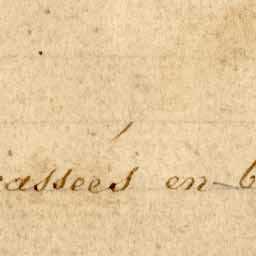 assees en b